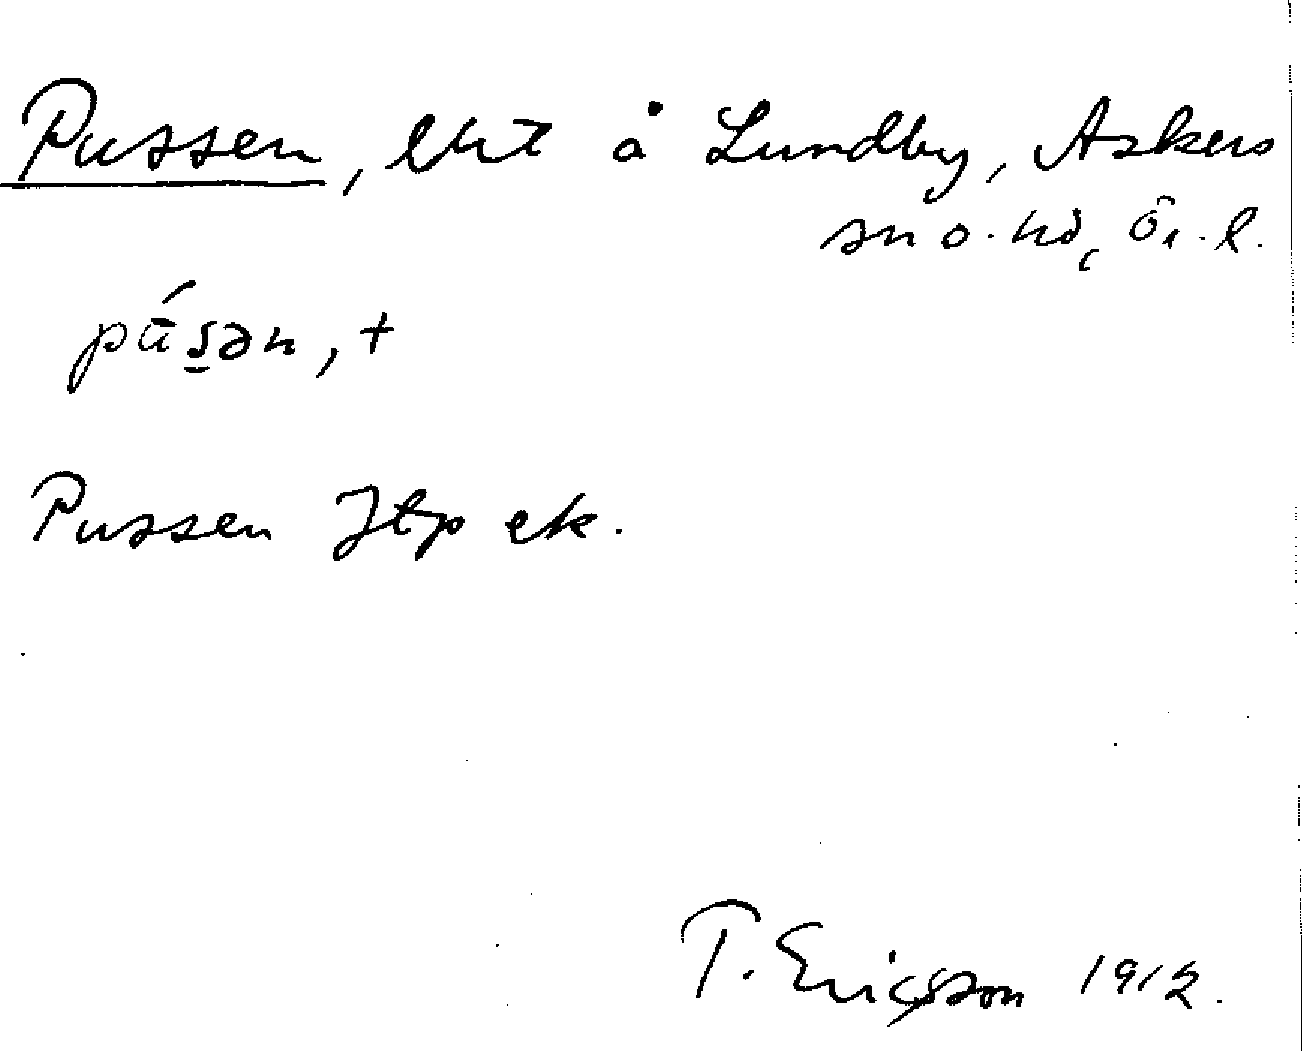 Pussen, lht å Lundby, Askers
sn o. hd, Ör. l.
pūśən, +
Pussen Jtp ek.
T. Ericsson 1912.